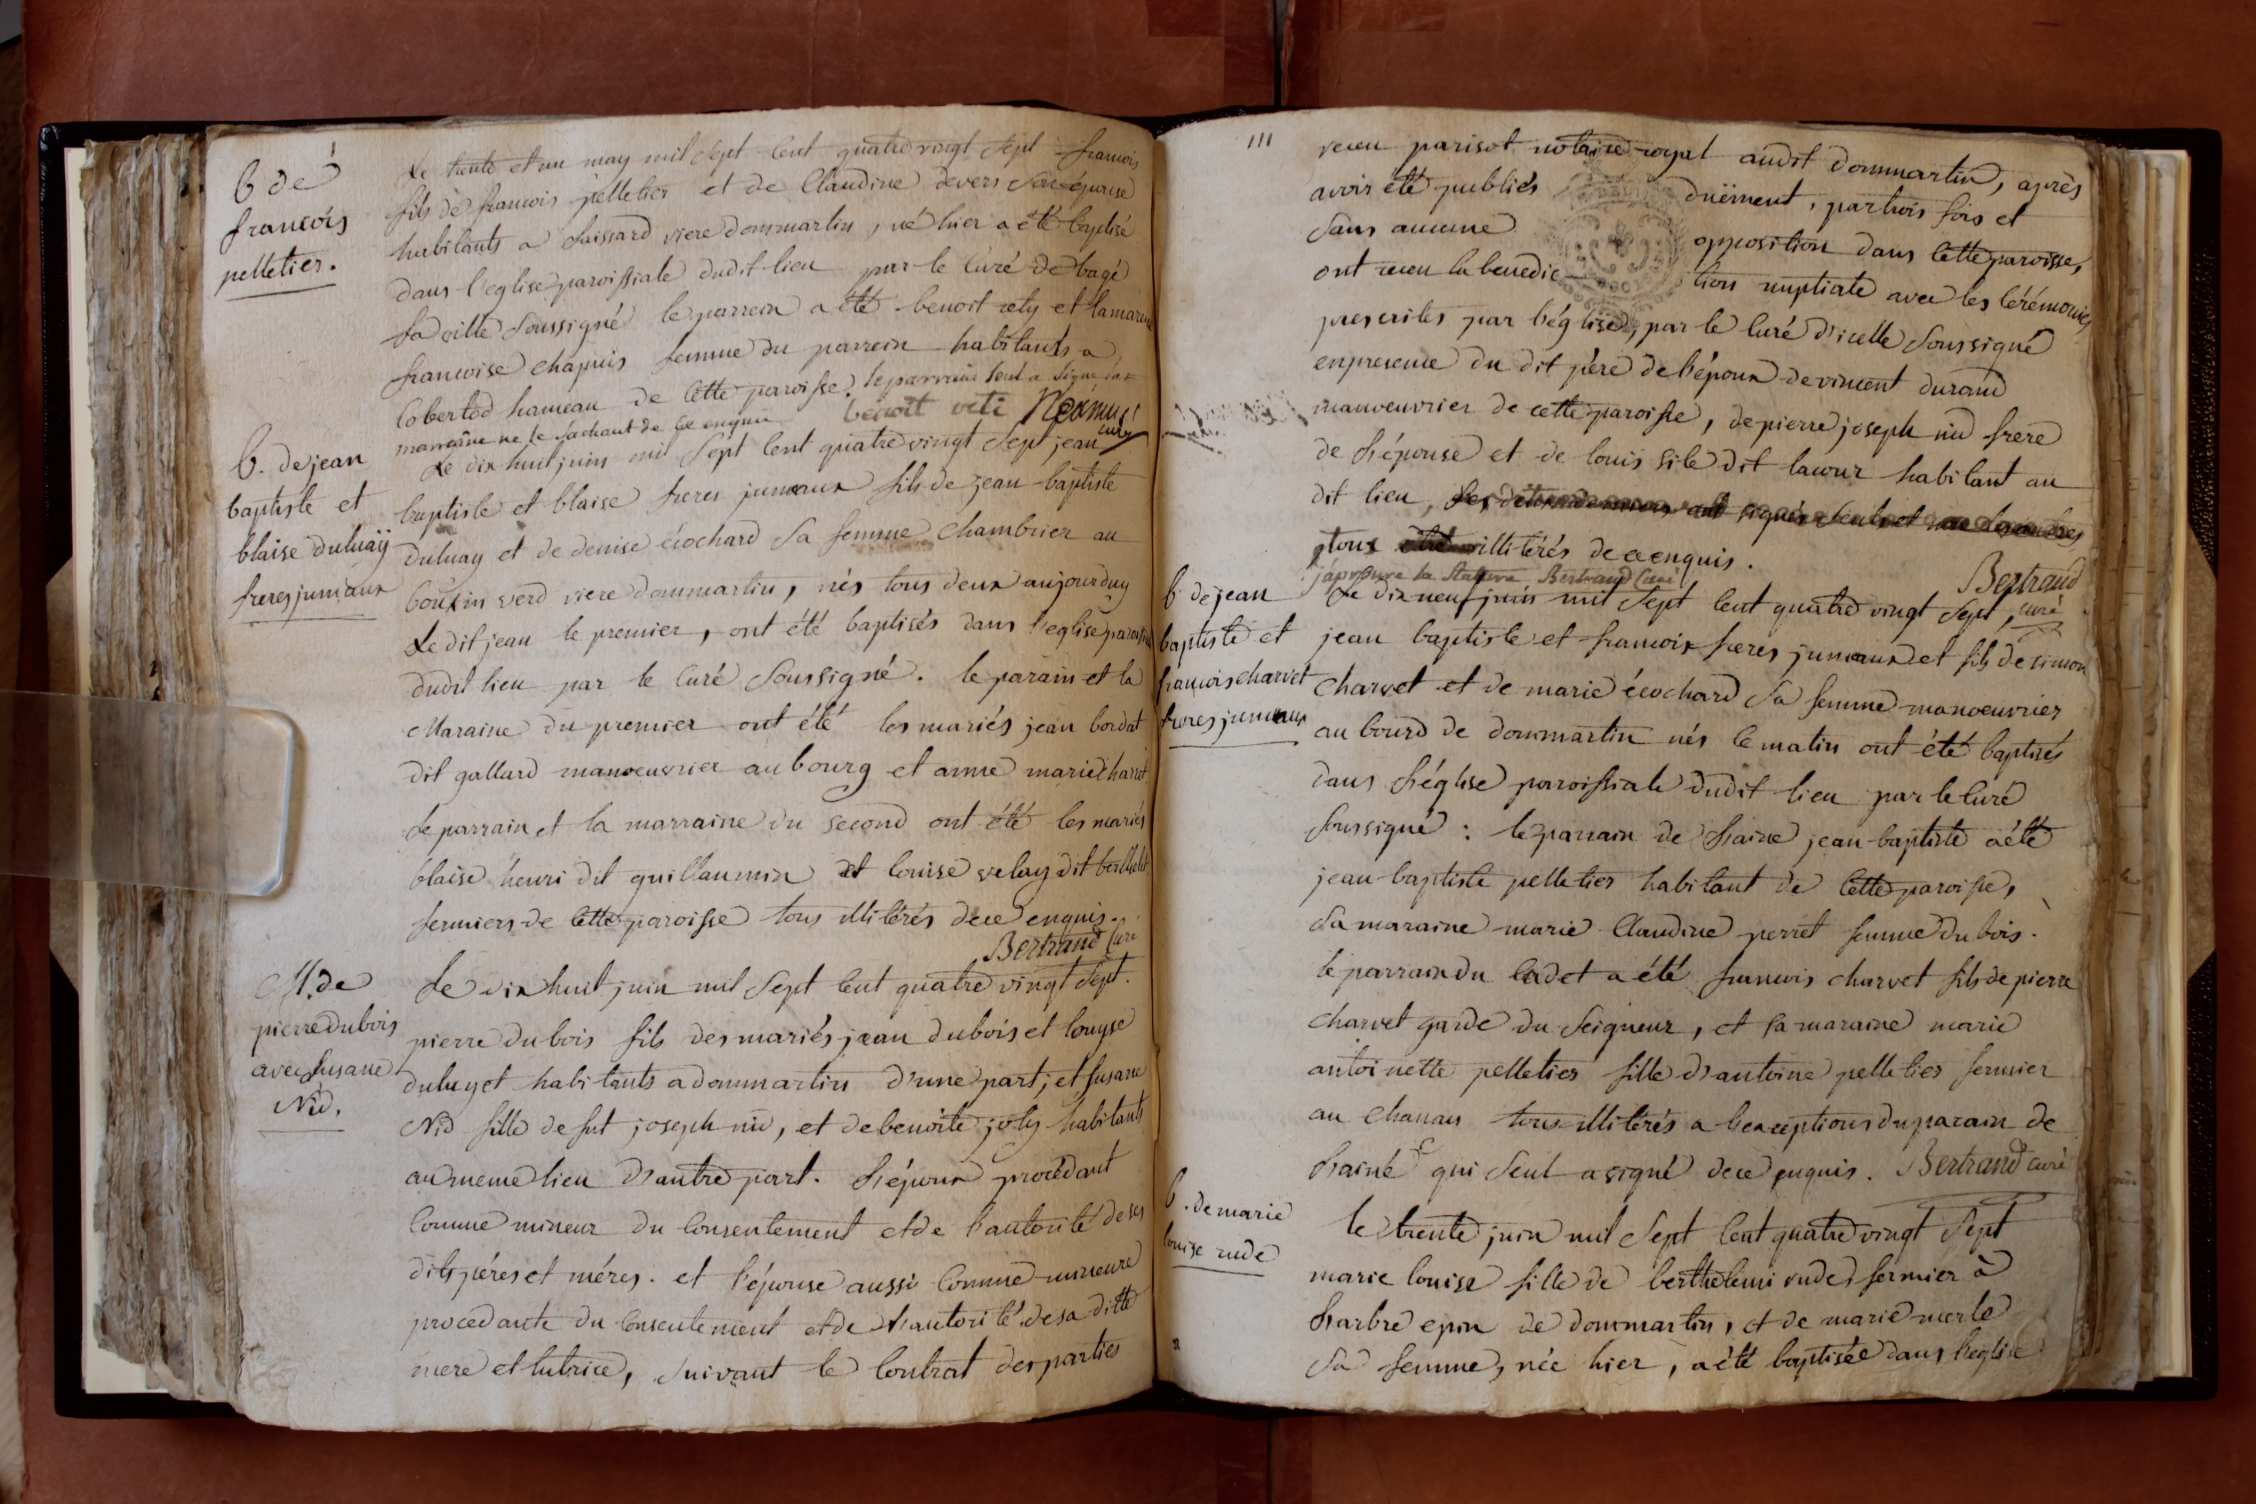 b de
francois
pelletier.
Le trente et un may mil sept cent quatre vingt sept francois
fils de francois pelletier et de Claudine devers son épouse
habitants a saissard riere dommartin, né hier a été baptisé
dans l'eglise paroissiale dudit lieu par le Curé de bagé
la ville soussigné le parrein a été benoit et la mareine
francoise chapuis femme du parrein habitants a
Cobertod hameau de Cette paroisse, le parrain seul a signé
marraine ne le sachant de ce enquis benoit curé
b. de jean
baptiste et
blaise duluaÿ
freres jumeaux
Le dix huit juin mil sept cent quatre vingt sept jean
baptiste et blaise freres jumeaux fils de jean baptiste
duluay et de denise écochard sa femme Chambrier au
verd riere dommartin, nés tous deux aujourduy
Le dit jean le premier, ont été baptisés dans l'eglise paroissiale
dudit lieu par le Curé soussigné. le parain et la
Maraine du premier ont été les mariés jean bordat
dit gallard manoeuvrier au bourg et anne marie charvet
Le parrain et la marraine du second ont été les mariés
blaise henri dit guillaumin et louise velay dit
fermiers de Cette paroisse tous illitérés de ce enquis.
Bertrand Curé
M. de
pierre dubois
avec susane
Nid.
Le dix huit juin mil sept Cent quatre vingt sept.
pierre dubois fils des mariés jean dubois et louyse
duluyet habitants a dommartin d'une part, et susane
Nid fille de fut joseph nid, et de benoite joly habitants
au meme lieu d'autre part. l'époux procédant
Comme mineur du Consentement et de l'autorité de ses
dits péres et méres. et l'épouse aussi Comme mineure
procedante du Consentement et de l'autorité de sa ditte
mere et tutrice, suivant le Contrat des parties
111
receu parisot notaire royal audit dommartin, après
avoir été publiés duëment, par trois fois et
sans aucune opposition dans Cette paroisse,
ont receu la benediction nuptiale avec les Cérémonies
prescrites par l'église, par le Curé d'icelle soussigné
en presence du dit pére de l'époux de vincent durand
manoeuvrier de cette paroisse, de pierre joseph nid frere
de l'épouse et de louis dit lacour habitant au
dit lieu,
tous illitérés de ce enquis.
j'aprouve la Bertrand Curé
Bertrand
curé
b de jean
baptiste et
francois charvet
freres jumeaux
Le dix neuf juin mil sept Cent quatre vingt sept,
jean baptiste et francois freres jumeaux et fils de simon
Charvet et de marie écochard sa femme manoeuvrier
au bourd de dommartin nés le matin ont été baptisés
dans l'église paroissiale dudit lieu par le Curé
soussigné : le parrain de l'ainé jean-baptiste a été
jean-baptiste pelletier habitant de Cette paroisse,
sa maraine marie Claudine perret femme dubois.
le parrain du Cadet a été francois charvet fils de pierre
Charvet garde du seigneur, et sa maraine marie
antoinette pelletier fille d'antoine pelletier fermier
au Chanau tous illitérés a l'exceptions du parain de
l'ainé qui seul a signé de ce enquis. Bertrand Curé
b. de marie
louise rude
le trente juin mil sept Cent quatre vingt sept
marie louise fille de berthelemi rude, fermier à
l'arbre epin de dommartin, et de marie merle
sa femme, née hier, a été baptisée dans l'eglise